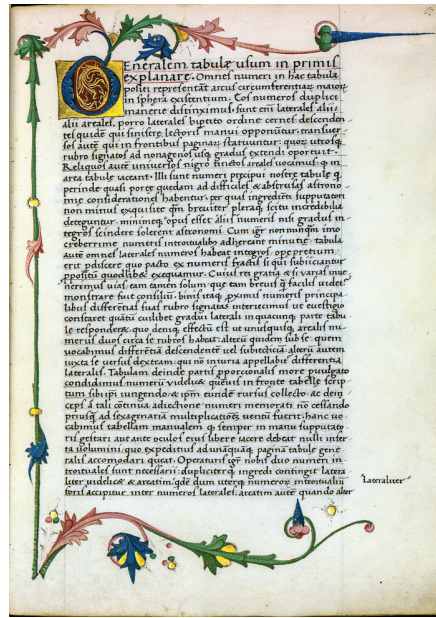 Generalem tabulæ usum in primis
explanare. Omnes numeri in hac tabula
positi repræsentāt arcus circumferentiaȝ maioȝ
in sphera existentium. Eos numeros duplici
manerie distinximus. sunt em̄ laterales alii:
alii areales, porro laterales bipito ordine cernes descenden
tes quidē qui sinistre lectoris manui opponūtur. transuer
sos autē qui in frontibus paginaȝ statuuntur. quoȝ utrosq;
rubro signatos ad nonagenos usq; gradus extendi oportuit.
Reliquos autē universos nigro tinctos areales uocamus. q̄ in
area tabule iaceant. Illi sunt numeri precipui nostre tabule q̄
perinde quasi porte quedam ad difficiles & abstrusas astrono
mie considerationes habentur. per quas ingredienti supputatori
non minus exquisite q̄m breuiter pleraq; scitu incredibilia
deteguntur. minimeq; opus esset aliis numeris nisi gradus in
tegros scindere solerent astronomi. Cum igr̄ non nunq̄m imo
creberrime numeris introitualibȝ adhereant minutie. tabula
autē omnes laterales numeros habeat integros. ope pretium
erit p̄discere quo pacto ex numeris
monstrare fuit consiliū. binis itaq; p̄ximis numeris principa
libus differentias suas rubro signatas interiecimus ut e uestigio
constaret quātū cuilibet gradui laterali in quacunq; parte tabu
le respondere. quo deniq; effectū est ut unusquisq; arealis nu
merus duos circa se rubros habeat. alterū quidem sub se. quem
vocabimus differētiā descendentē vel subiectiuā. alterū autem
iuxta se versus dexteram. qui nō iniuria appellabit differentia
lateralis. Tabulam deinde partis p̄porcionalis more puulgato
condidimus numerū videlicet quēuis in fronte tabelle scrip
tum sibi ip̄i iungendo. & ip̄m eundē rursus collecto. ac dein
ceps a tali cōtinua adiectione numeri memorati nō cessando
priusq̄ ad sexagenariā multiplicationē ventū fuerit. hanc vo
cabimus tabellam manualem q̄ semper in manu supputato
ris gestari aut ante oculos eius libere iacere debeat nulli inser
ta volumini. quo expeditius ad unāquāq; paginā tabule gene
ralis accomodari queat. Operaturis igr̄ nobis duo numeri in
troituales sunt necessarii. dupliciterq; ingredi contingit latera
liter videlicet & areatim. q̄dē dum uterq; numeroȝ introitualiū
foris accipitur inter numeros laterales. areatim autē quando alter
Lateraliter